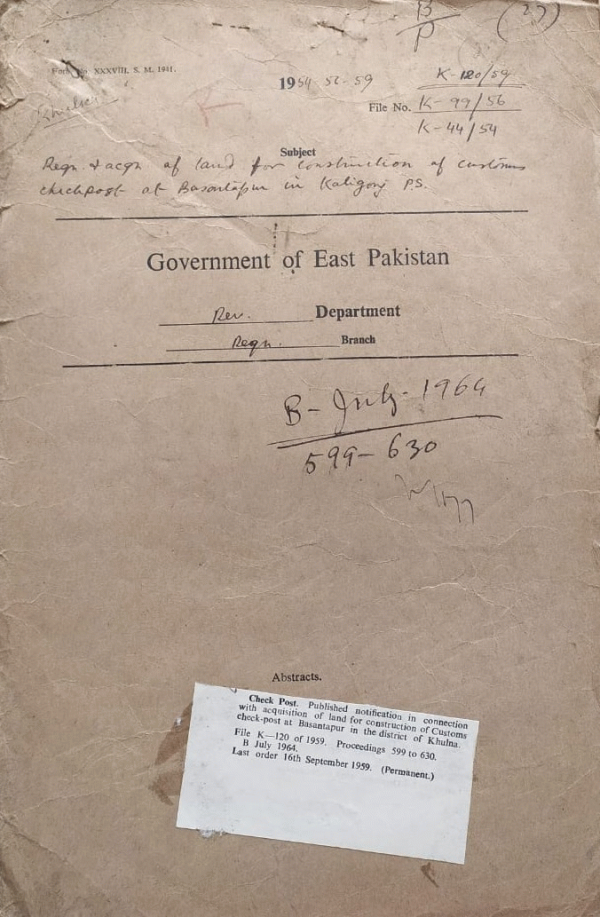 B
P
(27)
Form No. XXXVIII. S. M. 1941.
1954 56-59
K-120/59
File No. K-99/56
K-44/54
Subject
Reqn. & acqn. of land for construction of customs
checkpost at Basantapur in Kaligonj P.S.
Government of East Pakistan
Rev. Department
Reqn. Branch
B- July- 1964
599-630
Abstracts.
Check Post. Published notification in connection
with acquisition of land for construction of Customs
check-post at Basantapur in the district of Khulna.
File K—120 of 1959. Proceedings 599 to 630.
B July 1964.
Last order 16th September 1959. (Permanent.)